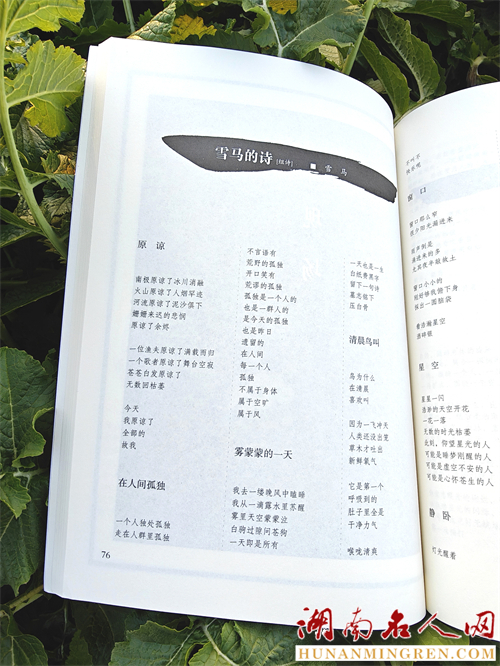 雪马的诗 [组诗] ■ 雪 马
原 谅
南极原谅了冰川消融
火山原谅了人烟罕迹
河流原谅了泥沙俱下
姗姗来迟的悲悯
原谅了余烬
一位渔夫原谅了满载而归
一个歌者原谅了舞台空寂
苍苍白发原谅了
无数回枯萎
今天
我原谅了
全部的
故我
在人间孤独
一个人独处孤独
走在人群里孤独
不言语有
荒野的孤独
开口笑有
荒谬的孤独
孤独是一个人的
也是一群人的
是今天的孤独
也是昨日
遗留的
在人间
每一个人
孤独
不属于身体
属于空旷
属于风
雾蒙蒙的一天
我去一缕晚风中瞌睡
我从一滴露水里苏醒
雾里天空蒙蒙泣
白驹过隙问苍狗
一天即是所有
一天也是一生
白纸费黑字
留下一句诗
墓志铭下
压白骨
清晨鸟叫
鸟为什么
在清晨
喜欢叫
因为一飞冲天
人类还没出笼
草木才吐出
新鲜氧气
它是第一个
呼吸到的
肚子里全是
干净力气
喉咙清爽
76
窗 口
窗口那么窄
窗口小小的
探出一圆脑袋
看浩瀚星空
星 空
星星一闪
浩渺的天空开花
一花一落
无数的时光枯萎
此刻，仰望星光的人
可能是睡梦刚醒的人
可能是虚空不安的人
可能是心怀苍生的人
静 卧
灯光醒着
湖南名人网
HUNANMINGREN.COM